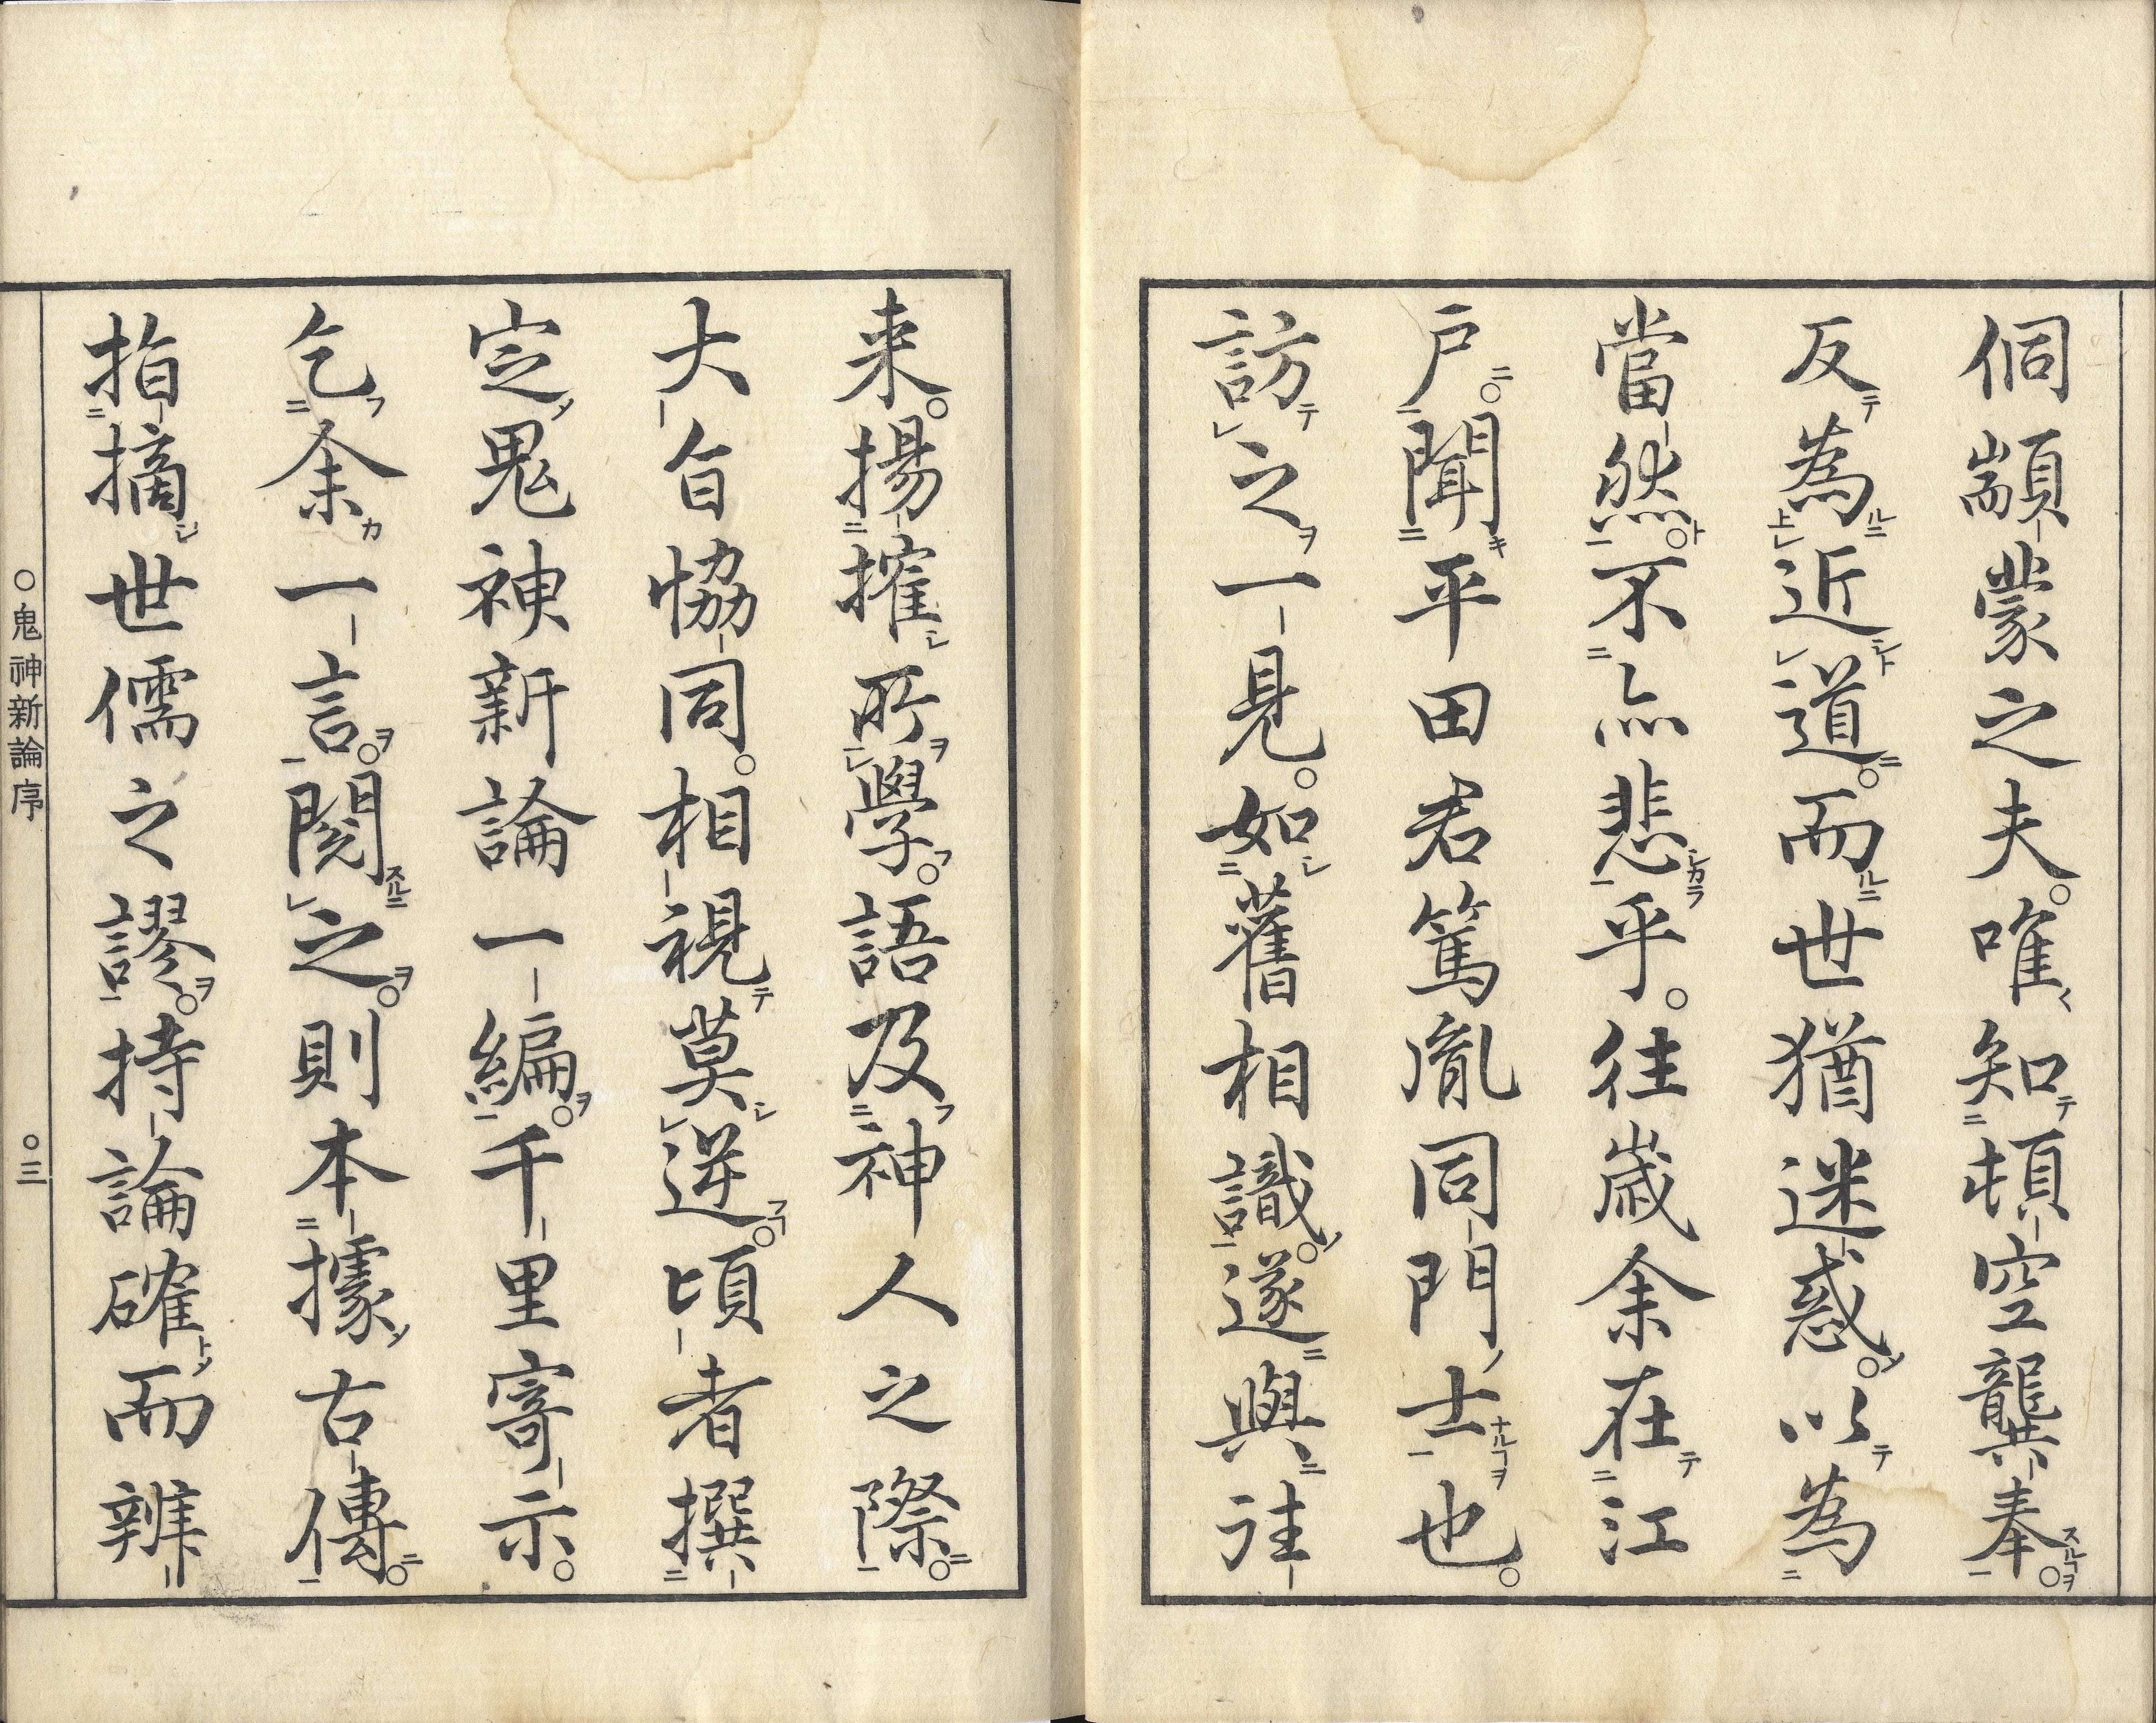 侗顓蒙之夫。唯知頓空龔奉。
反為近道。而世猶迷惑。以為
當然。不亦悲乎。往歲余在江
戶。聞平田君篤胤同門士也。
訪之一見。如舊相識。遂與往
来。揚搉所學。語及神人之際。
大旨恊同。相視莫逆。頃者撰
定鬼神新論一編。千里寄示。
乞余一言。閱之。則本據古傳。
指摘世儒之謬。持論確而辨
○鬼神新論序 ○三